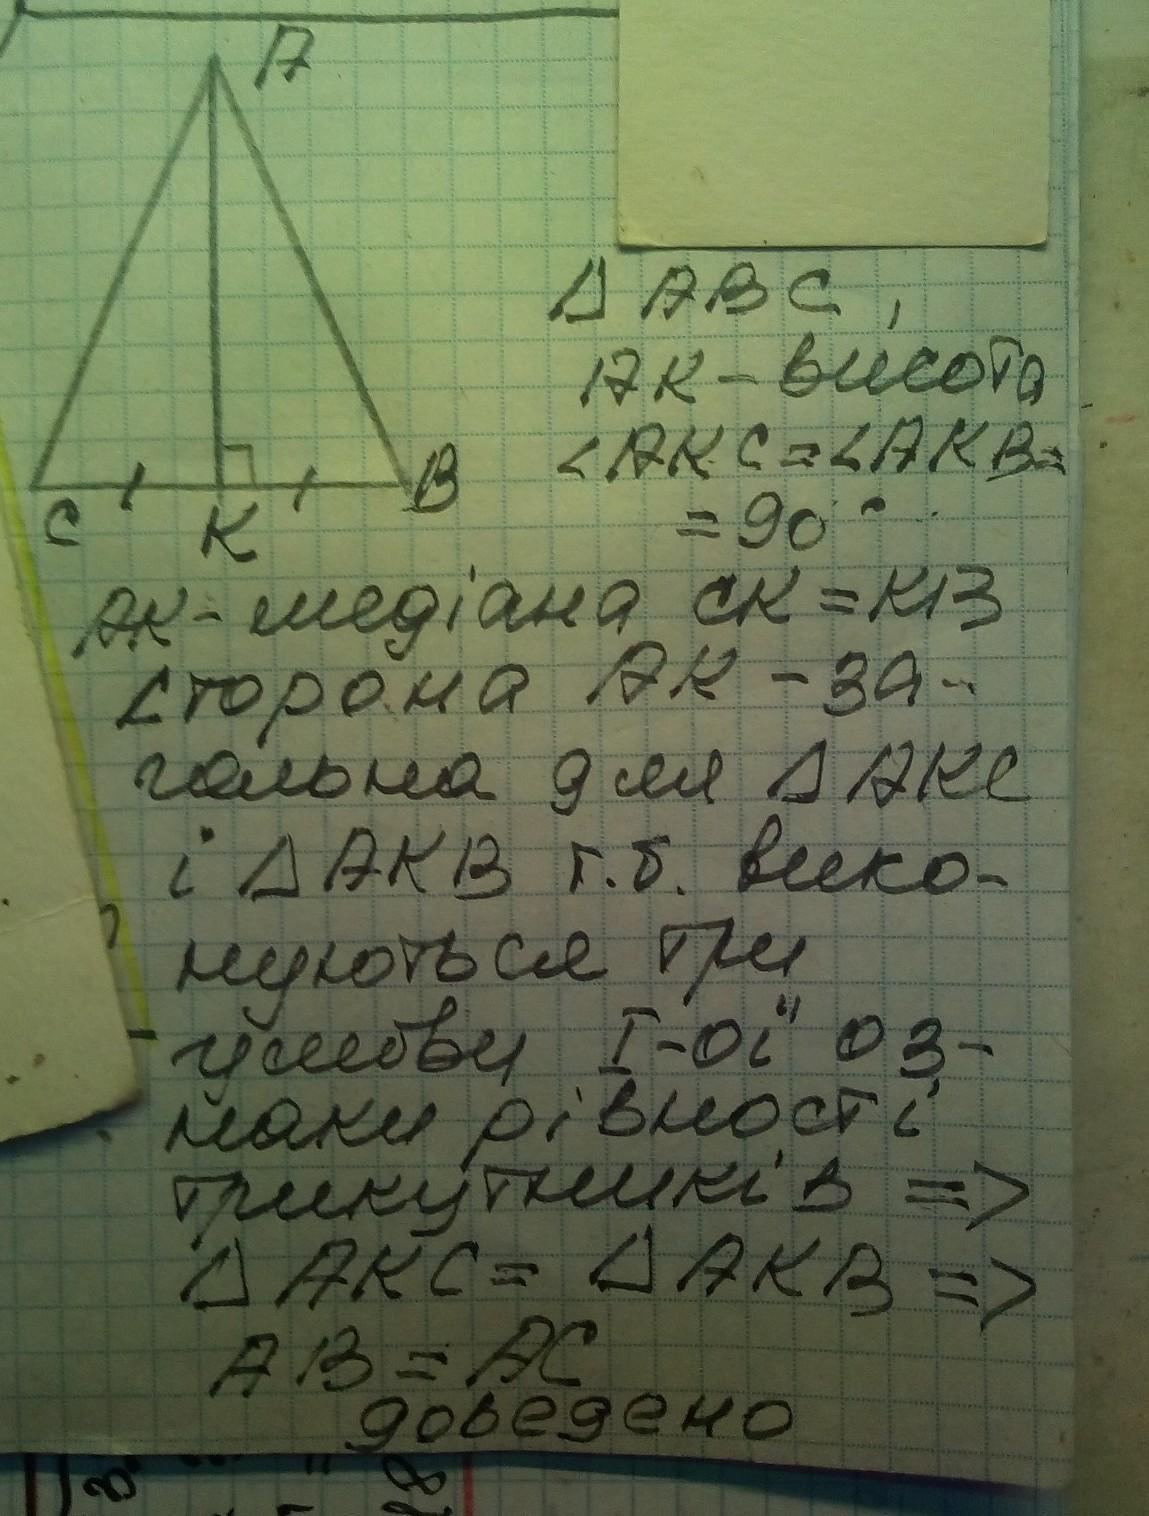 A
C
K
B
△ABC,
AK – висота
∠AKC = ∠AKB =
= 90°
AK – медіана CK = KB
сторона AK – за-
гальна для △AKC
і △AKB т.б. вико-
нуються три
умови I-ої оз-
наки рівності
трикутників =>
△AKC = △AKB =>
AB = AC
доведено